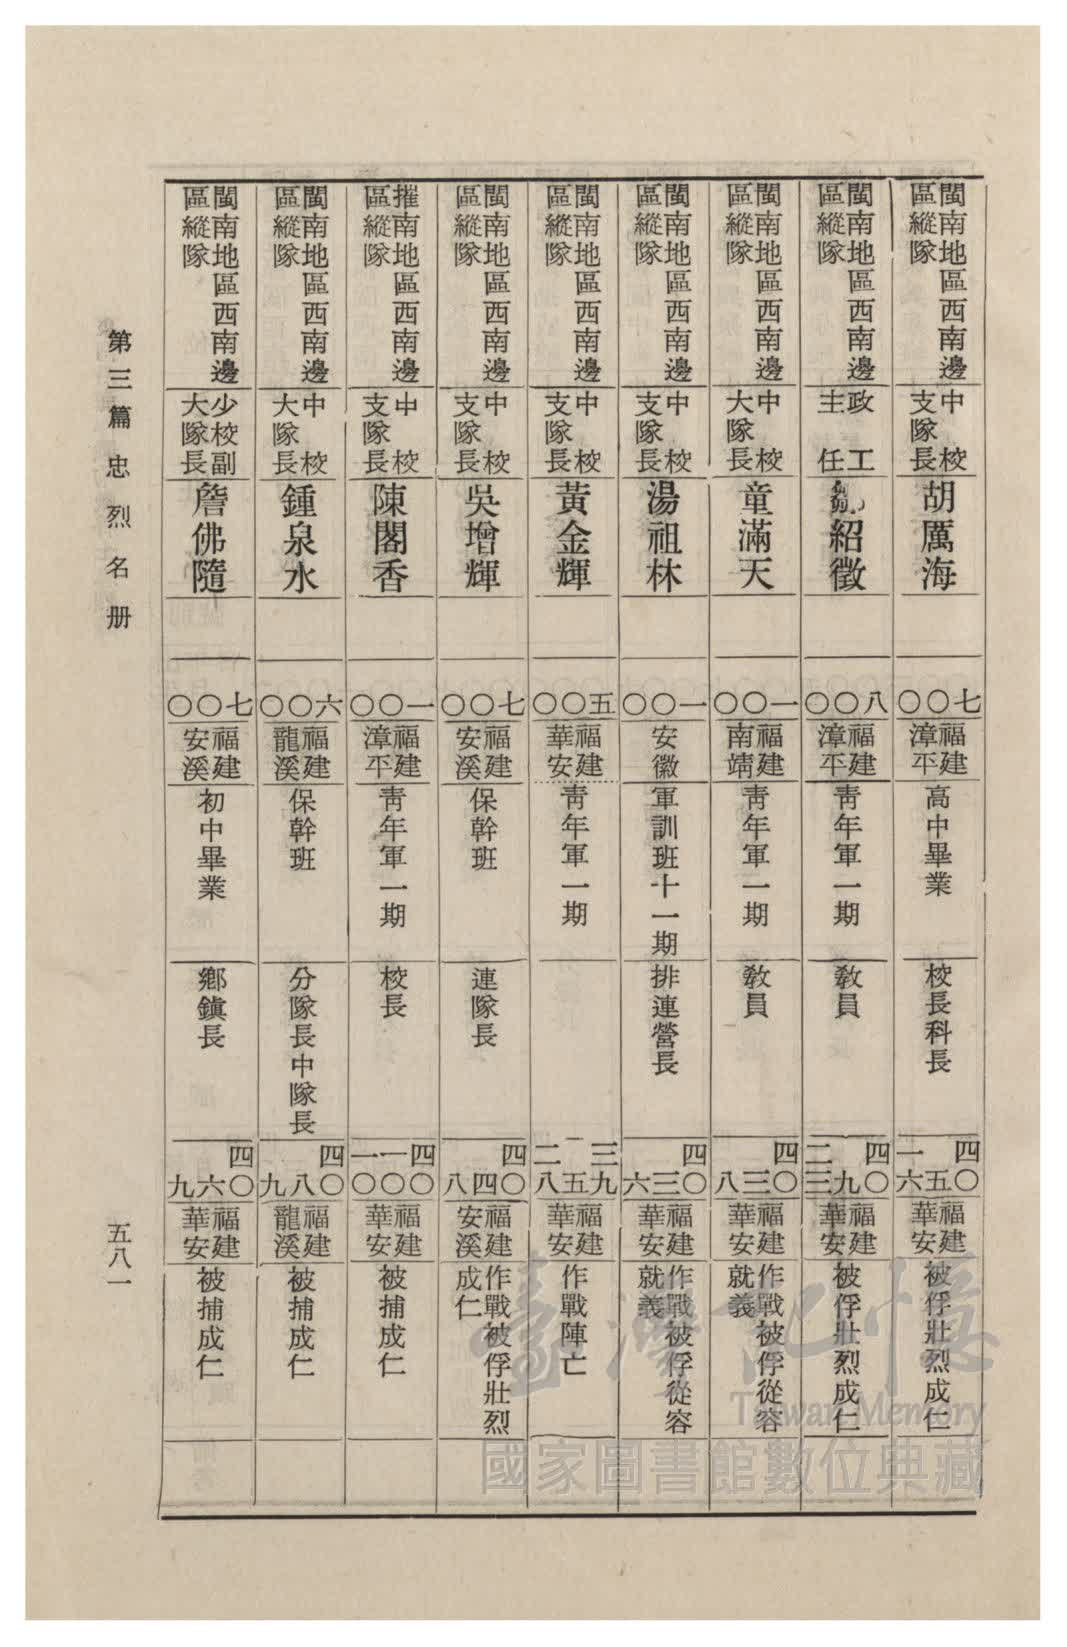 閩南地區西南邊
區縱隊
中校
支隊長
胡厲海
七〇〇
福建
漳平
高中畢業
校長科長
四〇五一六
福建
華安
被俘壯烈成仁
閩南地區西南邊
區縱隊
政工
主任
紹徵
八〇〇
福建
漳平
青年軍一期
教員
四〇九二三
福建
華安
被俘壯烈成仁
閩南地區西南邊
區縱隊
中校
大隊長
童滿天
一〇〇
福建
南靖
青年軍一期
教員
四〇三八
福建
華安
作戰被俘從容
就義
閩南地區西南邊
區縱隊
中校
支隊長
湯祖林
一〇〇
安徽
軍訓班十一期
排連營長
四〇三六
福建
華安
作戰被俘從容
就義
閩南地區西南邊
區縱隊
中校
支隊長
黃金輝
五〇〇
福建
華安
青年軍一期
三九五二八
福建
華安
作戰陣亡
閩南地區西南邊
區縱隊
中校
支隊長
吳增輝
七〇〇
福建
安溪
保幹班
連隊長
四〇四八
福建
安溪
作戰被俘壯烈
成仁
摧南地區西南邊
區縱隊
中校
支隊長
陳閣香
一〇〇
福建
漳平
青年軍一期
校長
四〇一〇一〇
福建
華安
被捕成仁
閩南地區西南邊
區縱隊
中校
大隊長
鍾泉水
六〇〇
福建
龍溪
保幹班
分隊長中隊長
四〇八九
福建
龍溪
被捕成仁
閩南地區西南邊
區縱隊
少校副
大隊長
詹佛隨
七〇〇
福建
安溪
初中畢業
鄉鎮長
四〇六九
福建
華安
被捕成仁
第三篇忠烈名册
五八一
臺灣記憶
Taiwan Memory
國家圖書館數位典藏